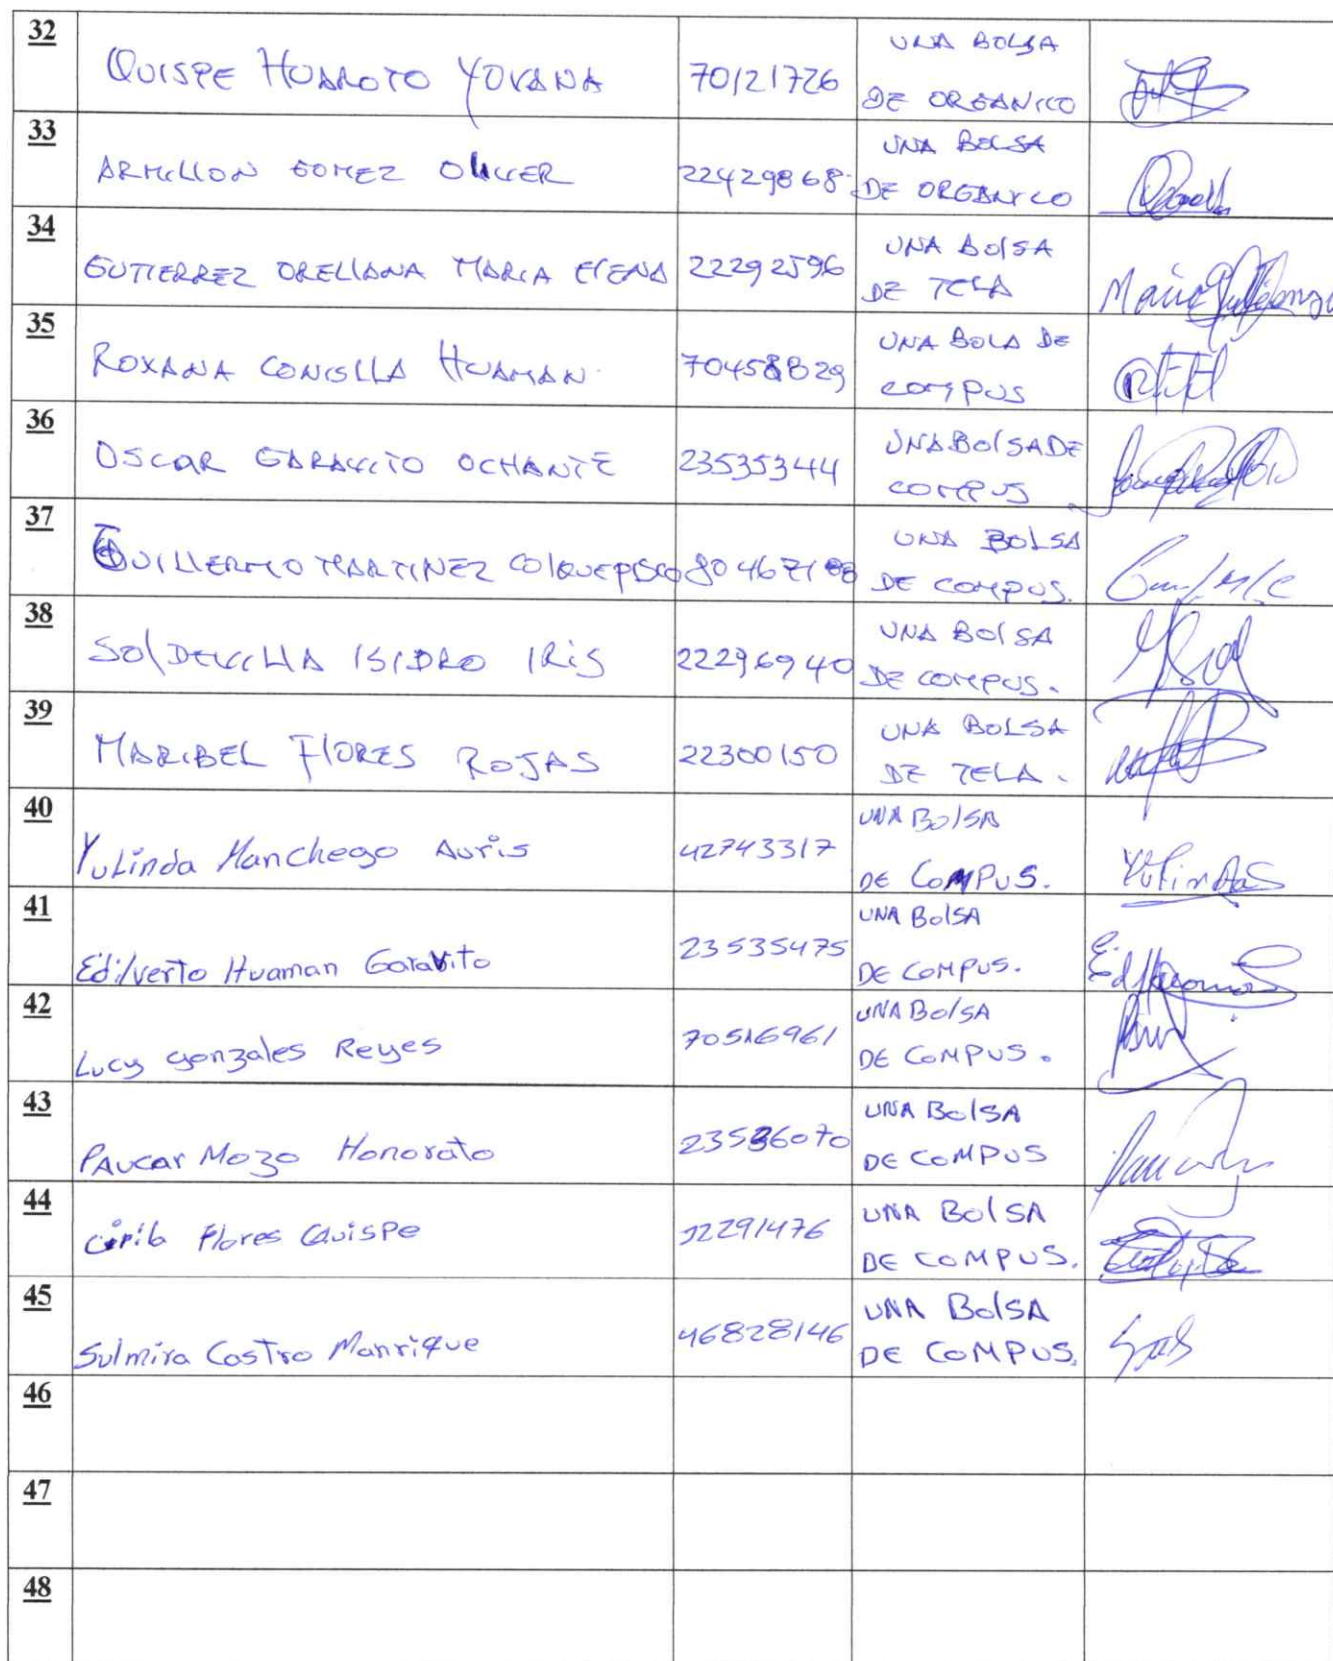 32
QUISPE HUAROTO YOVANA 70121726 UNA BOLSA
DE ORGANICO
33
ARMILLON GOMEZ OLIVER 22429868 UNA BOLSA
DE ORGANICO
34
GUTIERREZ ORELLANA MARIA ELENA 22292596 UNA BOLSA
DE TELA
35
ROXANA CONISLLA HUAMAN. 70458829 UNA BOLA DE
COMPUS
36
OSCAR GARAVITO OCHANTE 23535344 UNA BOLSA DE
COMPUS
37
GUILLERMO MARTINEZ COLQUEPISCO 804671 UNA BOLSA
DE COMPUS.
38
SOLDEVILLA ISIDRO IRIS 22296940 UNA BOLSA
DE COMPUS.
39
MARIBEL FLORES ROJAS 22300150 UNA BOLSA
DE TELA.
40
Yulinda Manchego Auris 42743317 UNA BOlSA
DE COMPUS. Yulinda
41
Edilverto Huaman Garavito 23535475 UNA BOlSA
DE COMPUS.
42
Lucy gonzales Reyes 70516961 UNA BOlSA
DE COMPUS.
43
PAucar Mozo Honorato 23536070 UNA BOlSA
DE COMPUS
44
Flores Quispe 22291476 UNA BOlSA
DE COMPUS.
45
Sulmira Castro Manrique 46828146 UNA BOlSA
DE COMPUS.
46
47
48